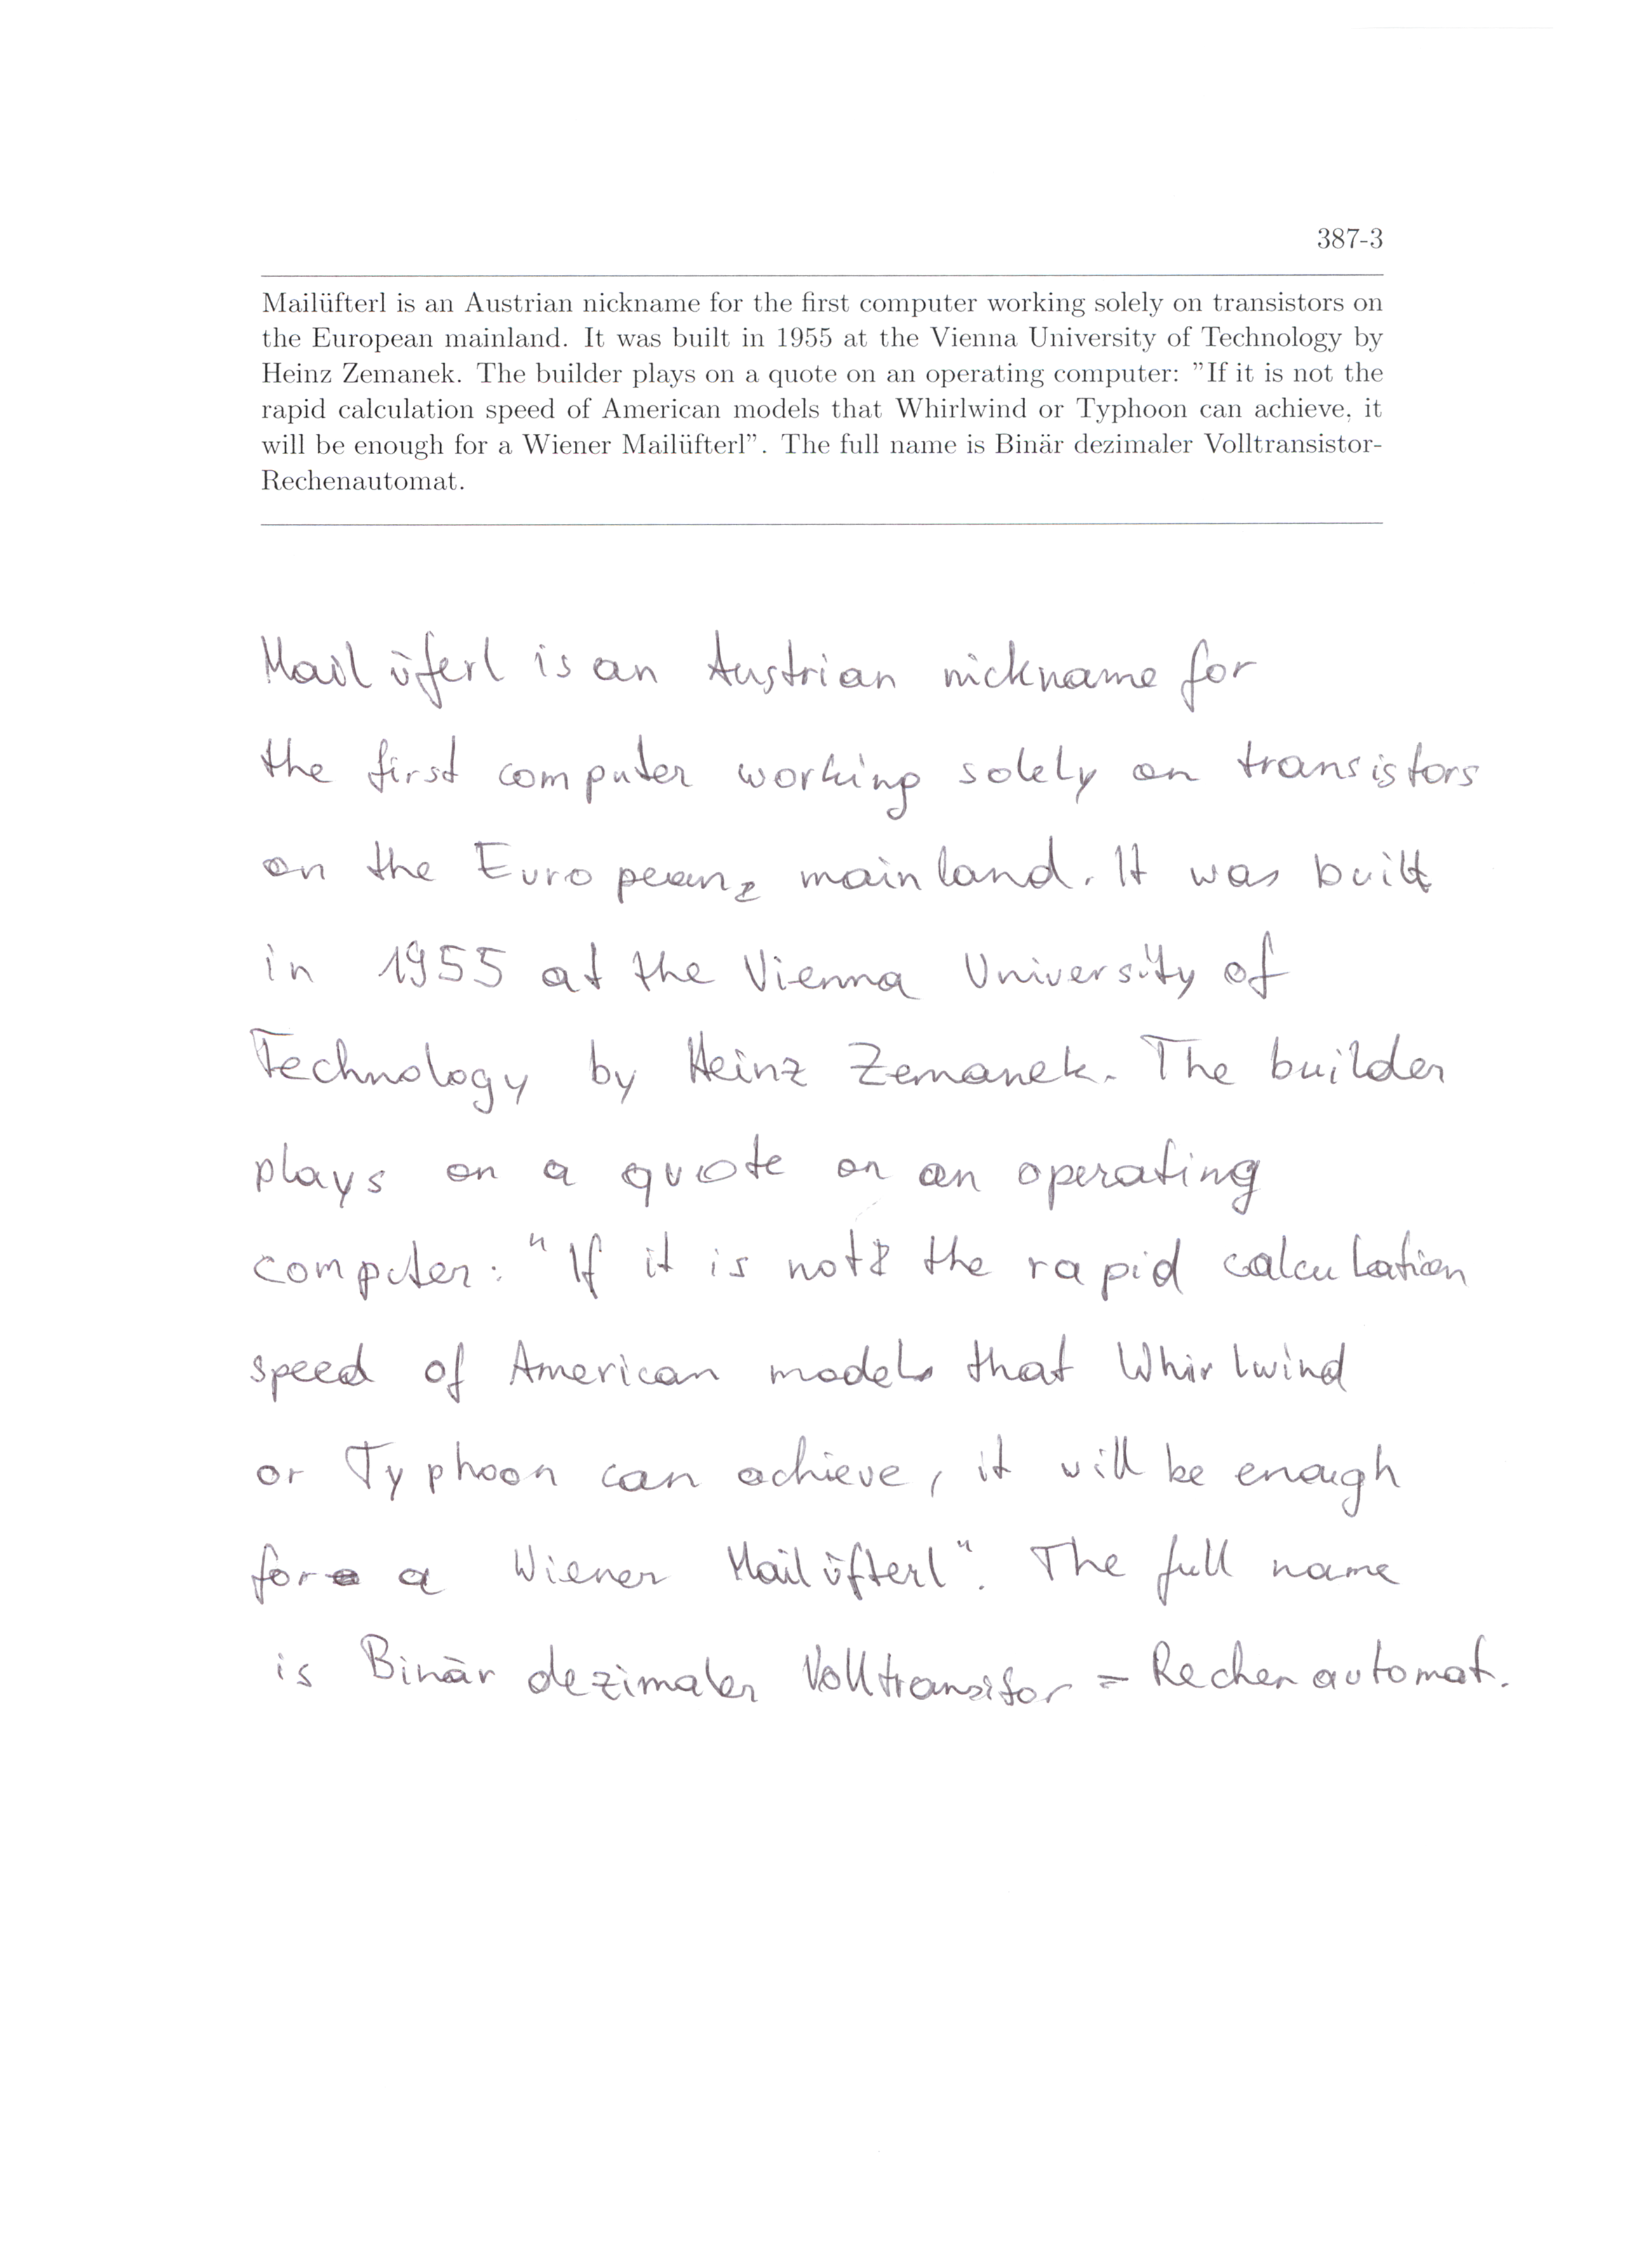 387-3
Mailüfterl is an Austrian nickname for the first computer working solely on transistors on
the European mainland. It was built in 1955 at the Vienna University of Technology by
Heinz Zemanek. The builder plays on a quote on an operating computer: "If it is not the
rapid calculation speed of American models that Whirlwind or Typhoon can achieve, it
will be enough for a Wiener Mailüfterl". The full name is Binär dezimaler Volltransistor-
Rechenautomat.
Mailüferl is an Austrian nickname for
the first computer working solely on transistors
on the European mainland. It was built
in 1955 at the Vienna University of
Technology by Heinz Zemanek. The builder
plays on a quote on an operating
computer: "If it is not the rapid calculation
speed of American models that Whirlwind
or Typhoon can achieve, it will be enough
for a Wiener Mailüfterl". The full name
is Binär dezimaler Volltransitor = Rechenautomat.